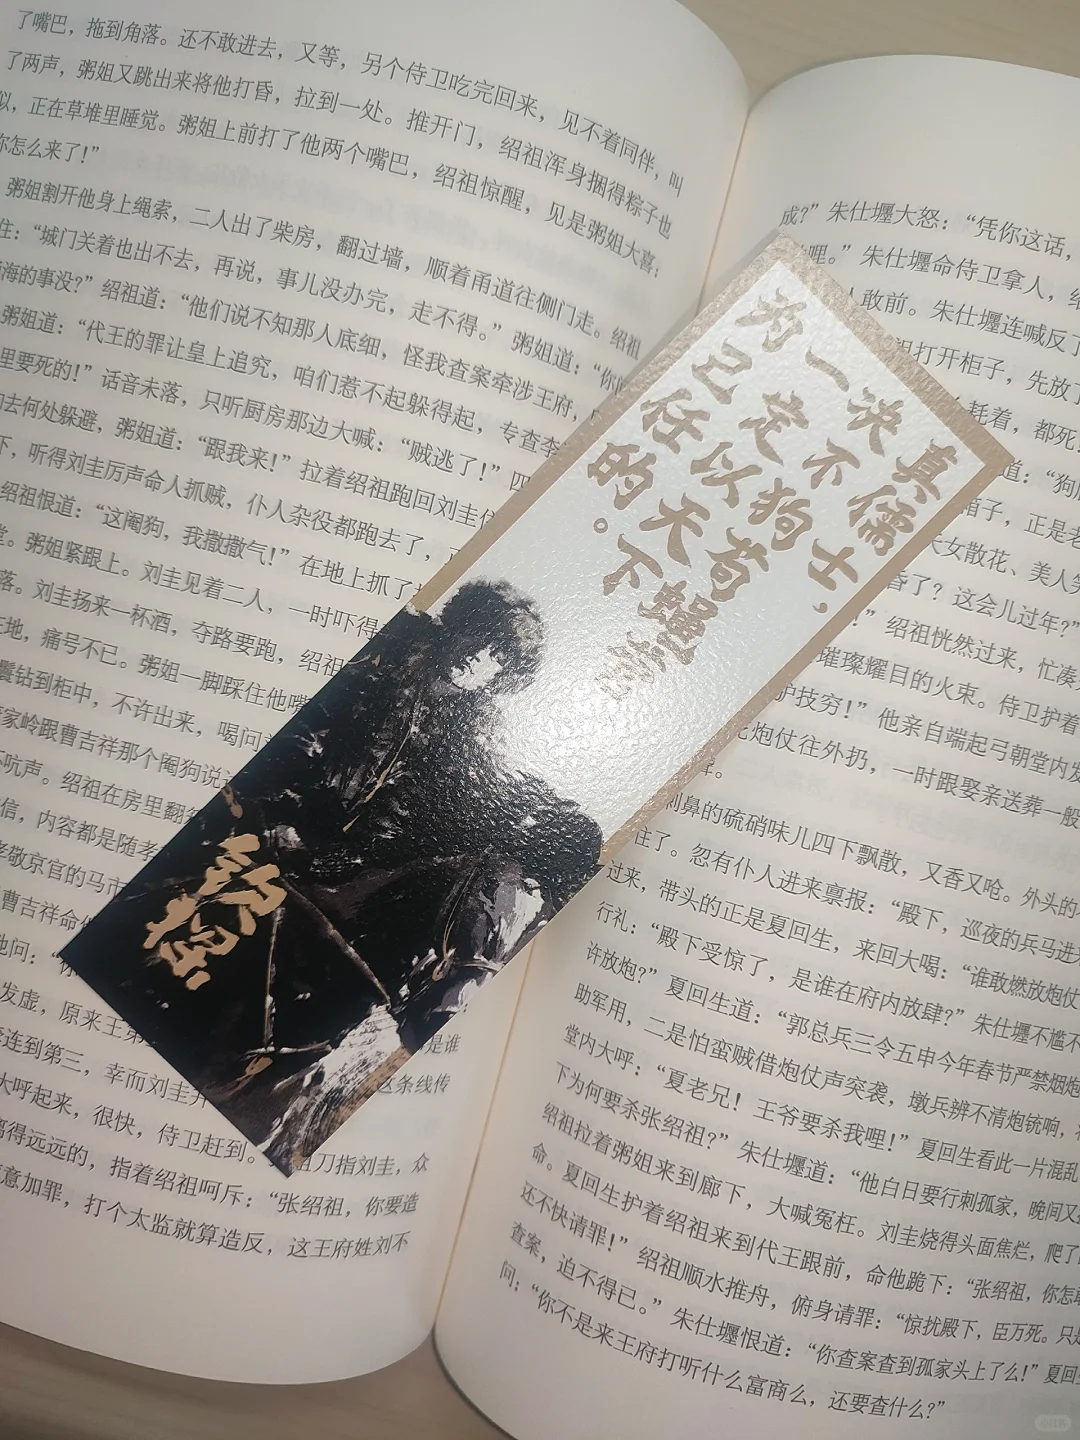 了嘴巴，拖到角落。还不敢进去，又等，另个侍卫吃完回来，见不着同伴，叫
了两声，粥姐又跳出来将他打昏，拉到一处。推开门，绍祖浑身捆得粽子也
似，正在草堆里睡觉。粥姐上前打了他两个嘴巴，绍祖惊醒，见是粥姐大喜：
你怎么来了！”
粥姐割开他身上绳索，二人出了柴房，翻过墙，顺着甬道往侧门走。绍祖
住：“城门关着也出不去，再说，事儿没办完，走不得。”粥姐道：“你
海的事没？”绍祖道：“他们说不知那人底细，怪我查案牵涉王府，
粥姐道：“代王的罪让皇上追究，咱们惹不起躲得起，专查李
里要死的！”话音未落，只听厨房那边大喊：“贼逃了！”四
去何处躲避，粥姐道：“跟我来！”拉着绍祖跑回刘圭住
下，听得刘圭厉声命人抓贼，仆人杂役都跑去了，
绍祖恨道：“这阉狗，我撒撒气！”在地上抓了
粥姐紧跟上。刘圭见着二人，一时吓得
落。刘圭扬来一杯酒，夺路要跑，绍祖
在地，痛号不已。粥姐一脚踩住他嘴
鬟钻到柜中，不许出来，喝问
家岭跟曹吉祥那个阉狗说
不吭声。绍祖在房里翻
信，内容都是随
孝敬京官的马市
曹吉祥命
他问：“
发虚，原来王
是谁
牵连到第三，幸而刘圭
这条线传
大呼起来，很快，侍卫赶到。
刀指刘圭，众
搞得远远的，指着绍祖呵斥：“张绍祖，你要造
意加罪，打个太监就算造反，这王府姓刘不
真儒士，
决不苟蝇
一定以狗
为己任
天下
的。
成？”朱仕壥大怒：“凭你这话，
哩。”朱仕壥命侍卫拿人，
人敢前。朱仕壥连喊反了
祖打开柜子，先放了
耗着，都死
道：“狗
箱子，正是老
天女散花、美人笑
昏了？这会儿过年？”
绍祖恍然过来，忙凑
璀璨耀目的火束。侍卫护着
护技穷！”他亲自端起弓朝堂内发
炮仗往外扔，一时跟娶亲送葬一般
刺鼻的硫硝味儿四下飘散，又香又呛。外头的
住了。忽有仆人进来禀报：“殿下，巡夜的兵马进
过来，带头的正是夏回生，来回大喝：“谁敢燃放炮仗
行礼：“殿下受惊了，是谁在府内放肆？”朱仕壥不尴不
许放炮？”夏回生道：“郭总兵三令五申今年春节严禁烟炮
助军用，二是怕蛮贼借炮仗声突袭，墩兵辨不清炮铳响，
堂内大呼：“夏老兄！王爷要杀我哩！”夏回生看此一片混乱
下为何要杀张绍祖？”朱仕壥道：“他白日要行刺孤家，晚间又
绍祖拉着粥姐来到廊下，大喊冤枉。刘圭烧得头面焦烂，爬了
命。夏回生护着绍祖来到代王跟前，命他跪下：“张绍祖，你怎敢
还不快请罪！”绍祖顺水推舟，俯身请罪：“惊扰殿下，臣万死。只是
查案，迫不得已。”朱仕壥恨道：“你查案查到孤家头上了么！”夏回
问：“你不是来王府打听什么富商么，还要查什么？”